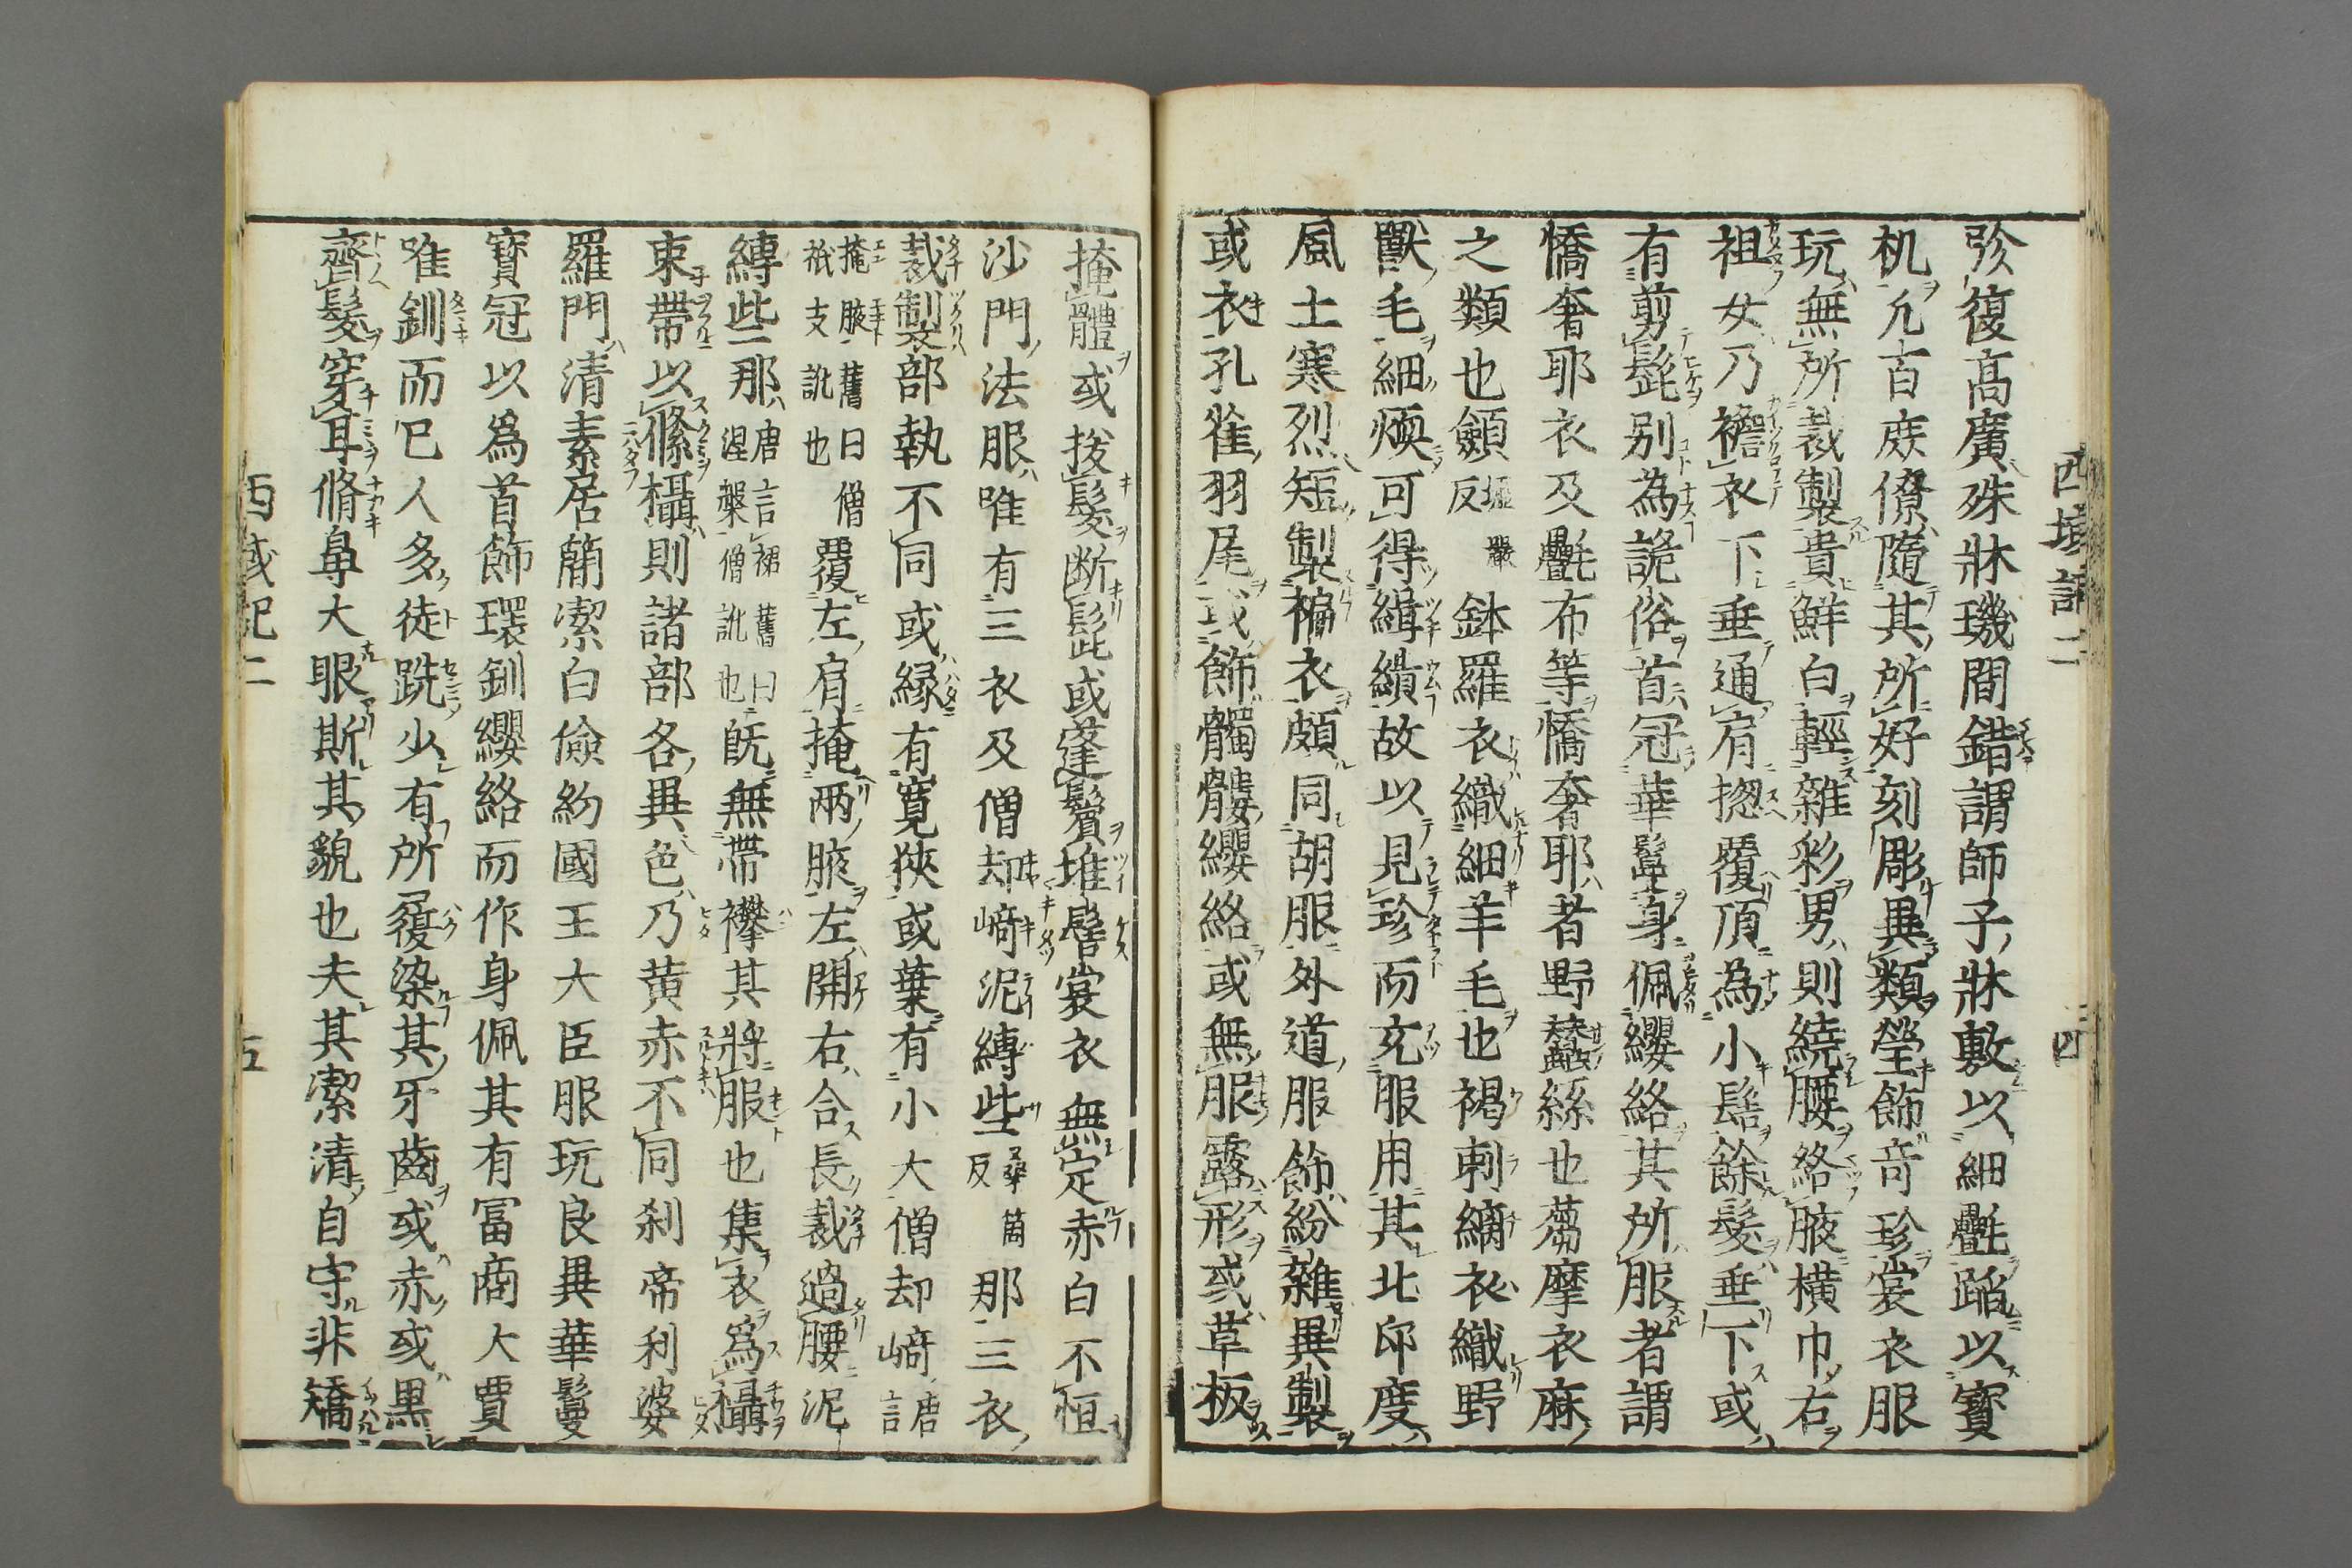 西域記二 四
弥復高廣殊牀璣間錯謂師子牀敷以細㲲蹈以寳
机凢百庶僚隨其所好刻彫異類瑩飾奇珍裳衣服
玩無所裁製貴鮮白輕雜彩男則繞腰絡腋横巾右
袒女乃襜衣下垂通肩揔覆頂為小髻餘髮垂下或
有剪髭别為詭俗首冠華鬘身佩纓絡其所服者謂
憍奢耶衣及㲲布等憍奢耶者野蠶絲也蒭摩衣麻
之類也顩墟嚴反鉢羅衣織細羊毛也褐剌縭衣織野
獸毛細煗可得緝績故以見珍而充服用其北印度
風土寒烈短製褊衣頗同胡服外道服飾紛雜異製
或衣孔雀羽尾或飾髑髏纓絡或無服露形或草板
掩體或拔髮断髭或蓬鬢堆髻裳衣無定赤白不恒
沙門法服唯有三衣及僧却﨑泥縳些桑箇反那三衣
裁製部執不同或縁有寛狹或葉有小大僧却﨑唐言
掩腋舊曰僧祇支訛也覆左肩掩兩腋左開右合長裁過腰泥
縳些那唐言裙舊曰涅槃僧訛也既無帶襻其將服也集衣爲襵
束帶以絛襵則諸部各異色乃黄赤不同刹帝利婆
羅門清素居簡潔白儉約國王大臣服玩良異華鬘
寳冠以爲首飾環釧纓絡而作身佩其有冨商大賈
唯釧而已人多徒跣少有所履染其牙齒或赤或黒
齊髮穿耳脩鼻大眼斯其貌也夫其潔清自守非矯
西域記二 五